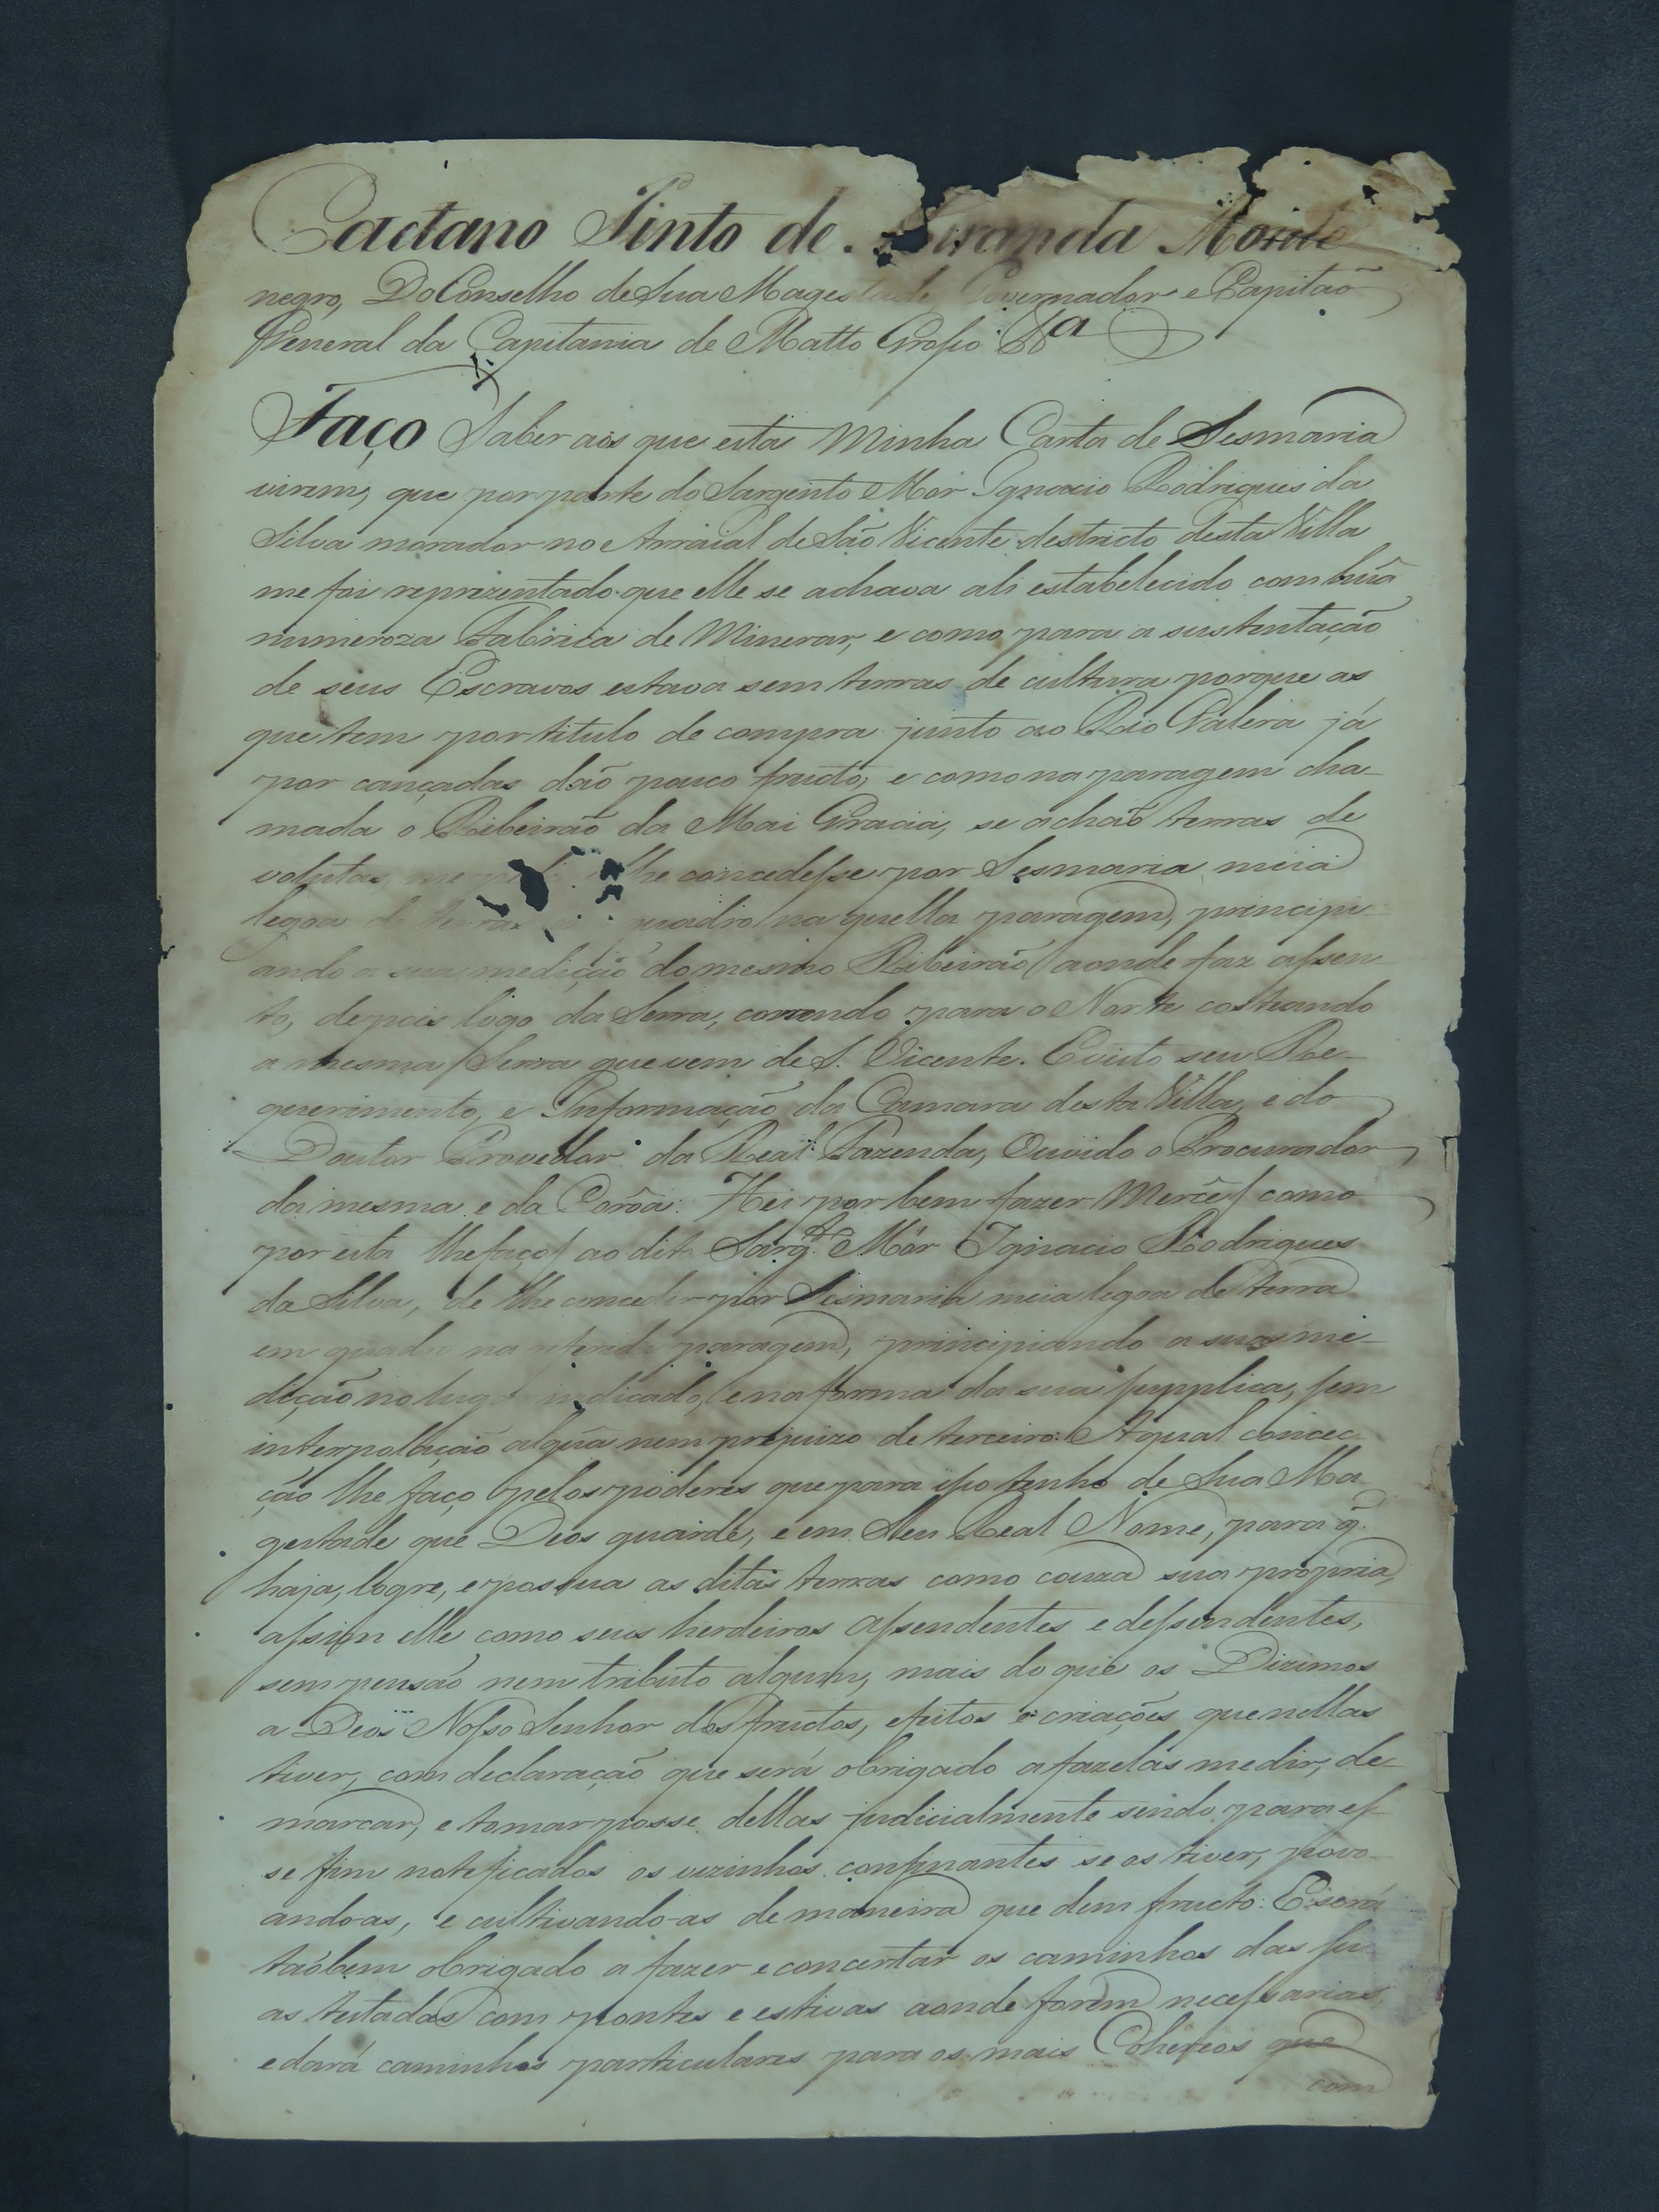 Caetano Pinto de Miranda Monte
negro, Do Conselho de Sua Magestade, Governador e Capitaõ
General da Capitania de Matto Grosso &a
Faço Saber aos que esta Minha Carta de Sesmaria
virem, que por parte do Sargento Mór Ignacio Rodrigues da
Silva morador no Arraial de Saõ Vicente destricto desta Villa
me foi reprezentado que elle se achava ali estabelecido com huã
numeroza Fabrica de Minerar, e como para a sustentação
de seus Escravos estava sem terras de cultura porque as
que tem por titulo de compra junto ao Rio Galera já
por cançadas dão pouco fructo; e como na paragem cha-
mada o Ribeiraõ da Mai Gracia, se achaõ terras de
volutas, me lhe concedesse por Sesmaria meia
legoa de terras quadro na quella paragem, principi-
ando a sua medição do mesmo Ribeiraõ (aonde faz assen-
to, depois logo da Serra, correndo para o Norte costeando
a mesma Serra que vem de S. Vicente. E visto seu Re-
querimento, e Informação da Camara desta Villa, e do
Doutor Provedor da Real Fazenda, Ouvido o Procurador
da mesma e da Corôa: Hei por bem fazer Mercê (como
por esta lhe faço) ao dito Sarg.to Mór Ignacio Rodrigues
da Silva, de lhe conceder por Sesmaria meia legoa de terra
em quadro na referida paragem, principiando a sua me-
dição no lugar indicado, e na forma da sua supplica, sem
interpollação algũa nem prejuizo de terceiro: A qual concec-
ção lhe faço pelos poderes que para isso tenho de Sua Ma
gestade que Deos guarde, e em Seu Real Nome, para q̃
haja, logre, e possua as ditas terras como couza sua propria,
assim elle como seus herdeiros assendentes e dessendentes,
sem pensão nem tributo algum, mais do que os Dizimos
a Deos Nosso Senhor dos fructos, efeitos e criações que nellas
tiver, com declaração que será obrigado a fazelas medir, de-
marcar, e tomar posse dellas judicialmente sendo para es-
se fim noteficados os vizinhos confinantes se os tiver, povo-
ando-as, e cultivando-as de maneira que dem fructo: E será
taõbem obrigado a fazer e concertar os caminhos das su-
as testadas com pontes e estivas aonde forem necessarias,
e dará caminhos particulares para os mais que
com